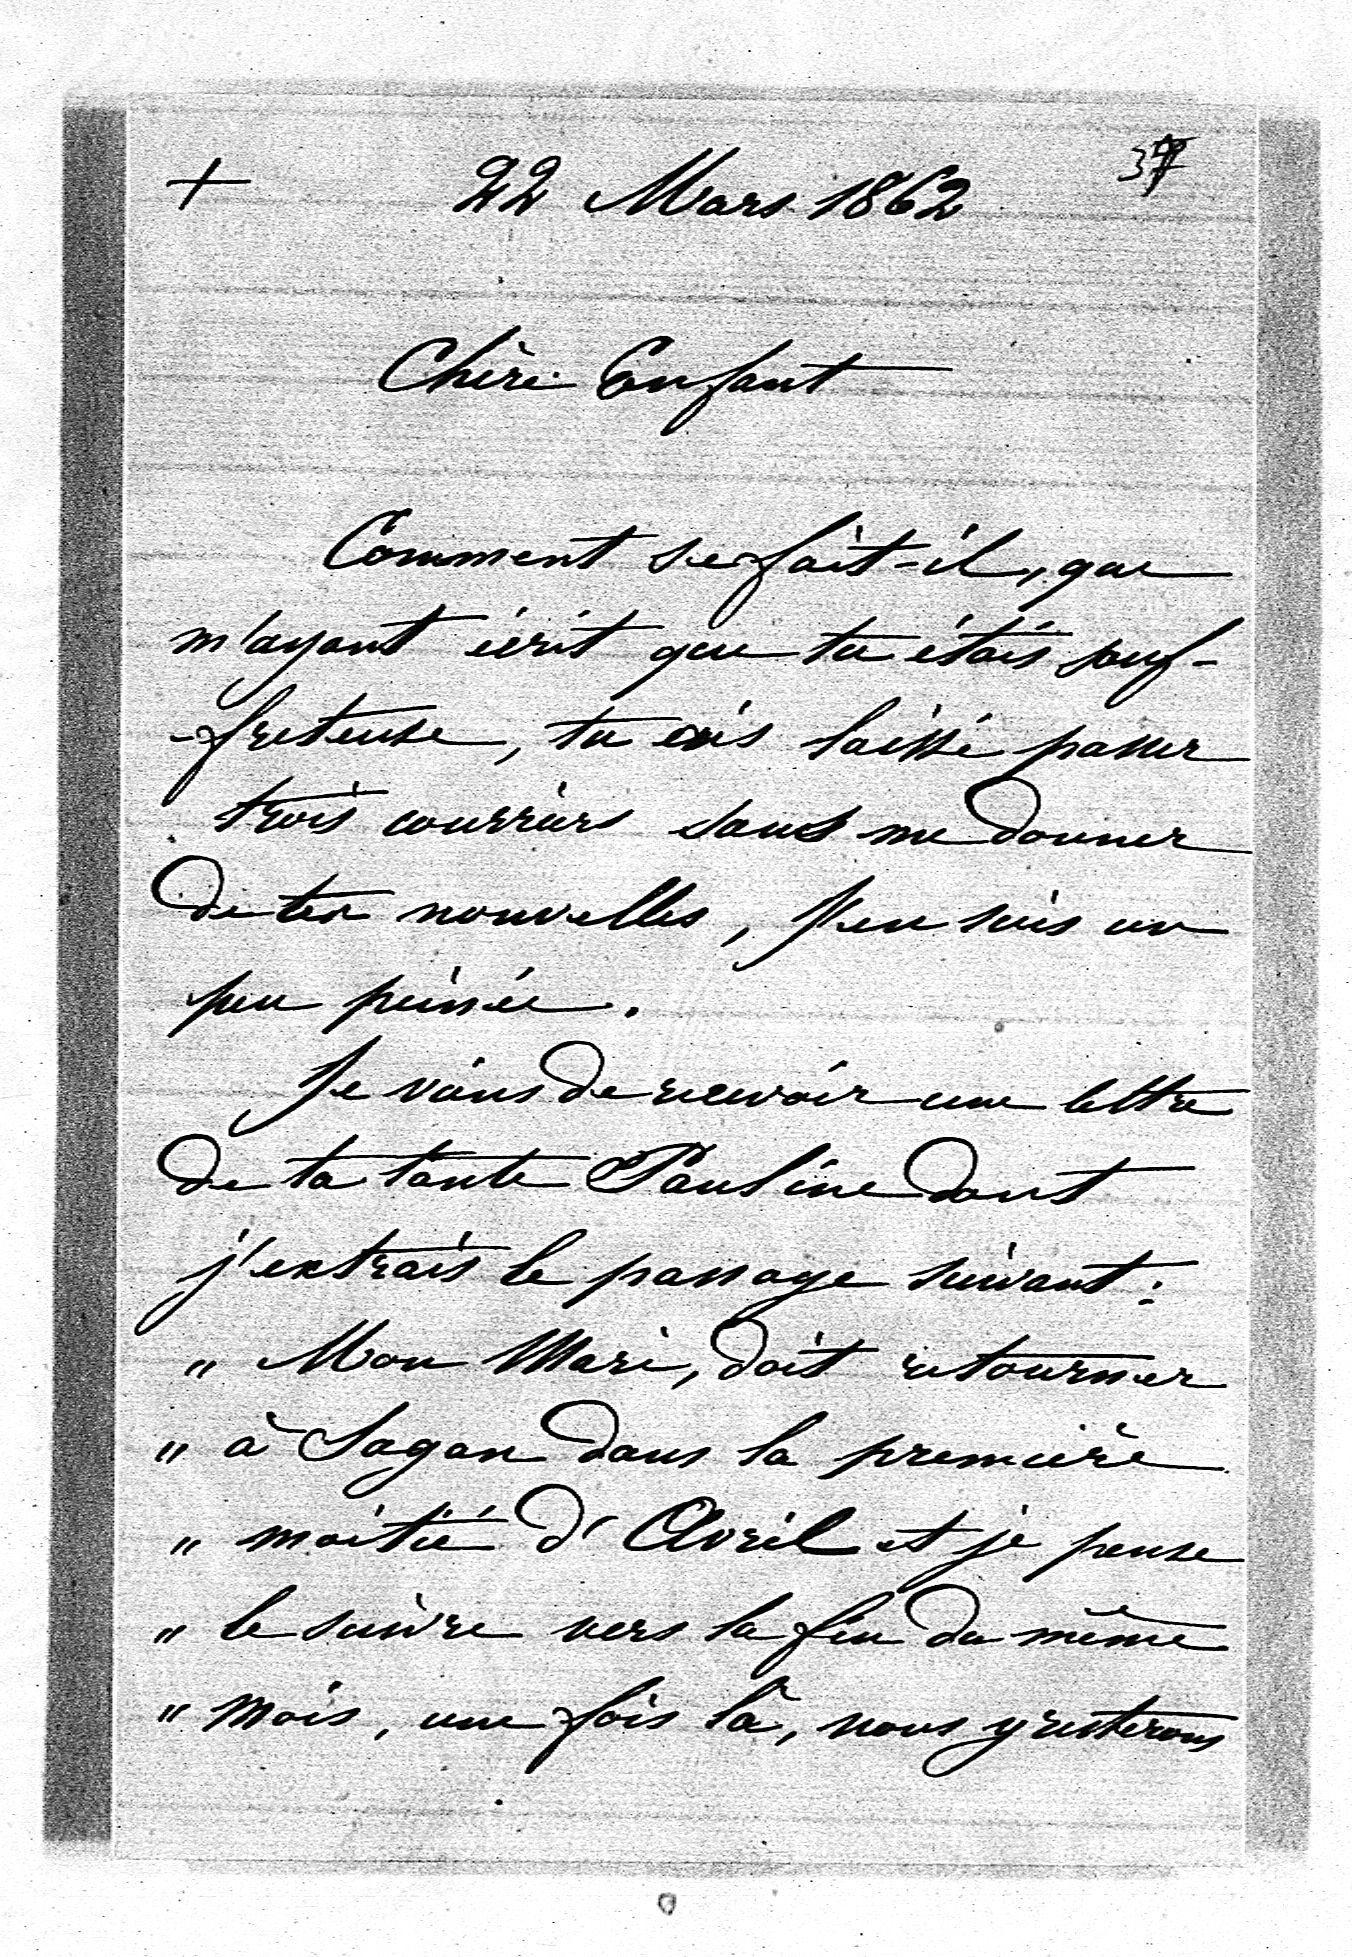 + 22 Mars 1862 37
Chère Enfant
Comment se fait-il, que
m'ayant écrit que tu étais souf-
-freteuse, tu ais laissé passer
trois courriers sans me donner
de tes nouvelles, j'en suis un
peu peinée.
Je viens de recevoir une lettre
de ta tante Pauline dont
j'extrais le passage suivant:
" Mon Mari, doit retourner
" à Sagan dans la première
" moitié d'Avril et je pense
" le suivre vers la fin du même
" mois, une fois là, nous y resterons